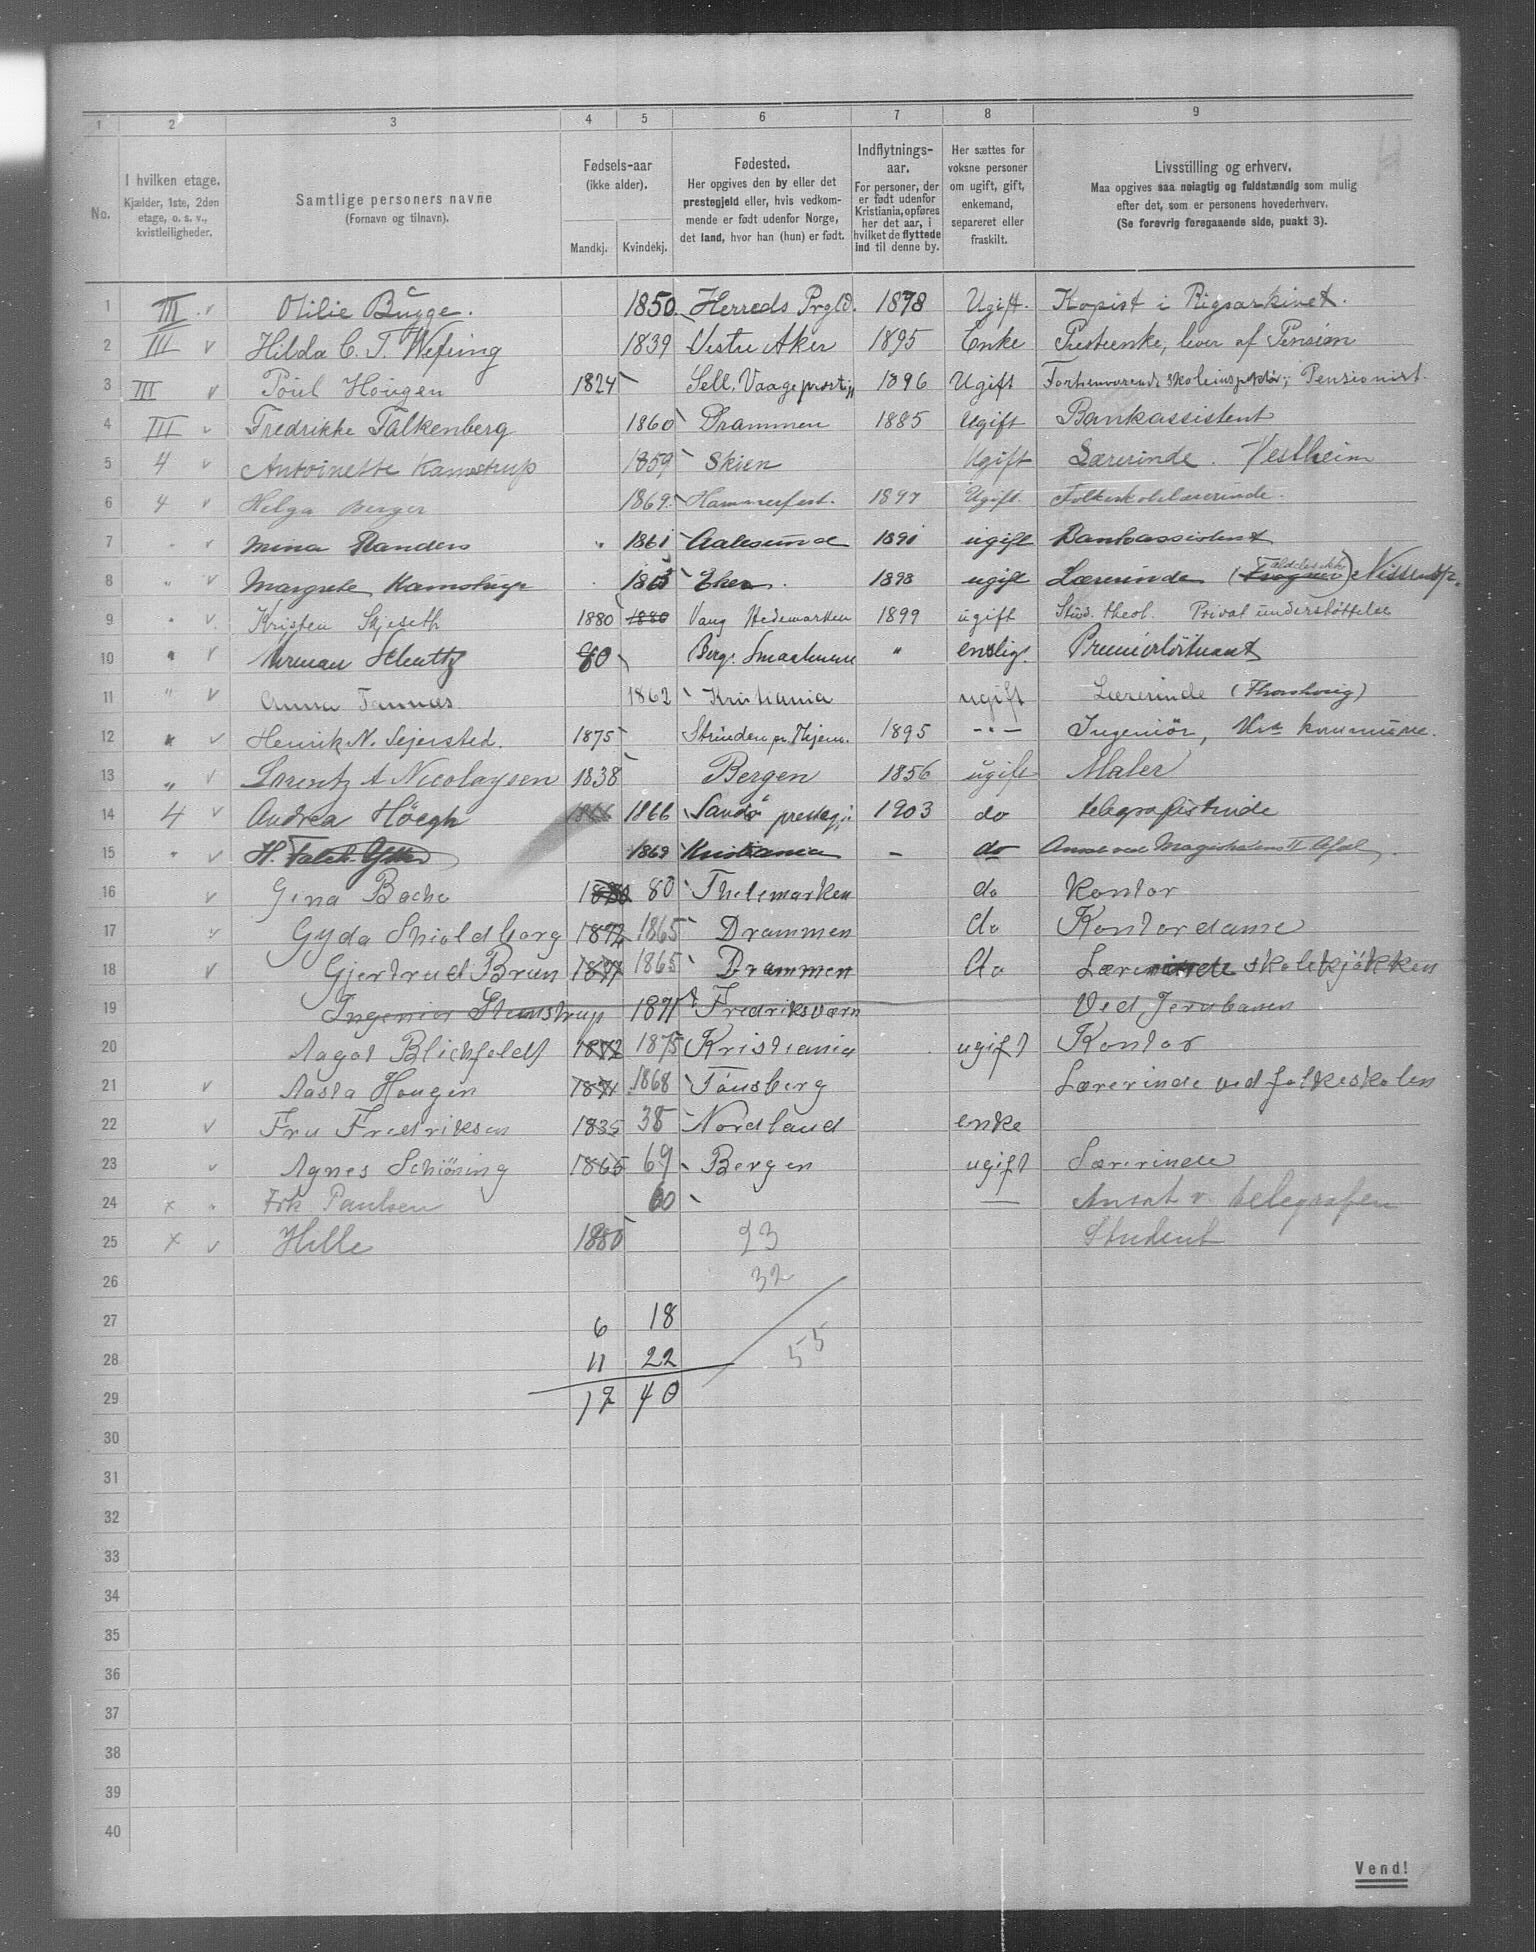 1 2 3 4 5 6 7 8 9
No.
I hvilken etage.
Kjælder, 1ste, 2den
etage, o. s. v.,
kvistleiligheder.
Samtlige personers navne
(Fornavn og tilnavn).
Fødsels-aar
(ikke alder).
Mandkj. Kvindekj.
Fødested.
Her opgives den by eller det
prestegjeld eller, hvis vedkom-
mende er født udenfor Norge,
det land, hvor han (hun) er født.
Indflytnings-
aar.
For personer, der
er født udenfor
Kristiania, opføres
her det aar, i
hvilket de flyttede
ind til denne by.
Her sættes for
voksne personer
om ugift, gift,
enkemand,
separeret eller
fraskilt.
Livsstilling og erhverv.
Maa opgives saa nøiagtig og fuldstændig som mulig
efter det, som er personens hovederhverv.
(Se forøvrig foregaaende side, punkt 3).
1 III v Otilie Bugge. 1850 Herreds Prgld. 1878 Ugift. Kopist i Rigsarkivet.
2 III v Hilda C. T. Wefring 1839 Vestre Aker 1895 Enke Presteenke, lever af Pension
3 III v Poul Hougen 1824 Sell, Vaage prestgj 1896 Ugift Forhenværende skoleinspektør; Pensionist.
4 III v Fredrikke Falkenberg 1860 Drammen 1885 Ugift Bankassistent
5 4 v Antoinette Kamstrup 1859 Skien Ugift Lærerinde. Vestheim
6 4 v Helga Berger 1869 Hammerfest. 1897 Ugift. Folkeskolelærerinde.
7 " v Mina Randers " 1861 Aalesund 1891 ugift Bankassistent
8 " v Margrete Kamstrup 1865 Eker. 1898 ugift Lærerinde (Frogner) Nissens
9 " v Kristen Skjeseth 1880 1880 Vang Hedemarken 1899 ugift Stud. theol. Privat understøttelse
10 " v Herman Schultz 80 Berg. Smaalenene " enslig. Premierløitnant
11 " v Anna Tannæs 1862 Kristiania ugift Lærerinde (Thorshaug)
12 " v Henrik N. Sejersted. 1875 Strinden pr. Thjem. 1895 -"- Ingeniör, Kra kommune.
13 " v Lorentz A Nicolaysen 1838 Bergen 1856 ugift Maler
14 4 v Andrea Höegh 1866 1866 Sandö prestegj 1903 do telegrafistinde
15 " v H. 1869 Kristiania - do Ansat ved Magistratens II Afdel.
16 v Gina Bache 1880 80 Thelemarken do Kontor
17 v Gyda Skioldborg 1872 1865 Drammen do Kontordame
18 v Gjertrud Brun 1877 1865 Drammen do Lærerinde skolekjökken
19 Ingenia Stenstrup 1871 Fredriksværn Ved Jernbanen
20 Aagot Blichfeldt 1872 1875 Kristiania ugift Kontor
21 v Aasta Hougen 1871 1868 Tönsberg Lærerinde ved folkeskolen
22 v Fru Fredriksen 1835 38 Nordland enke
23 v Agnes Schiöning 1865 69 Bergen ugift Lærerinde
24 x " Frk Paulsen 60 — Ansat v. telegrafen
25 x v Hille 1880 23 Student
26 32
27 6 18
28 11 22 55
29 17 40
30
31
32
33
34
35
36
37
38
39
40
Vend!